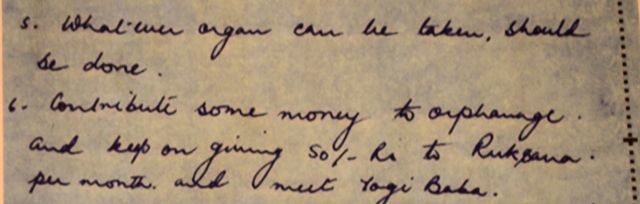 5. Whatever organ can be taken, should
be done.
6. Contribute some money to orphanage.
and keep on giving 50/- Rs to Ruksana.
per month. and meet Yogi Baba.